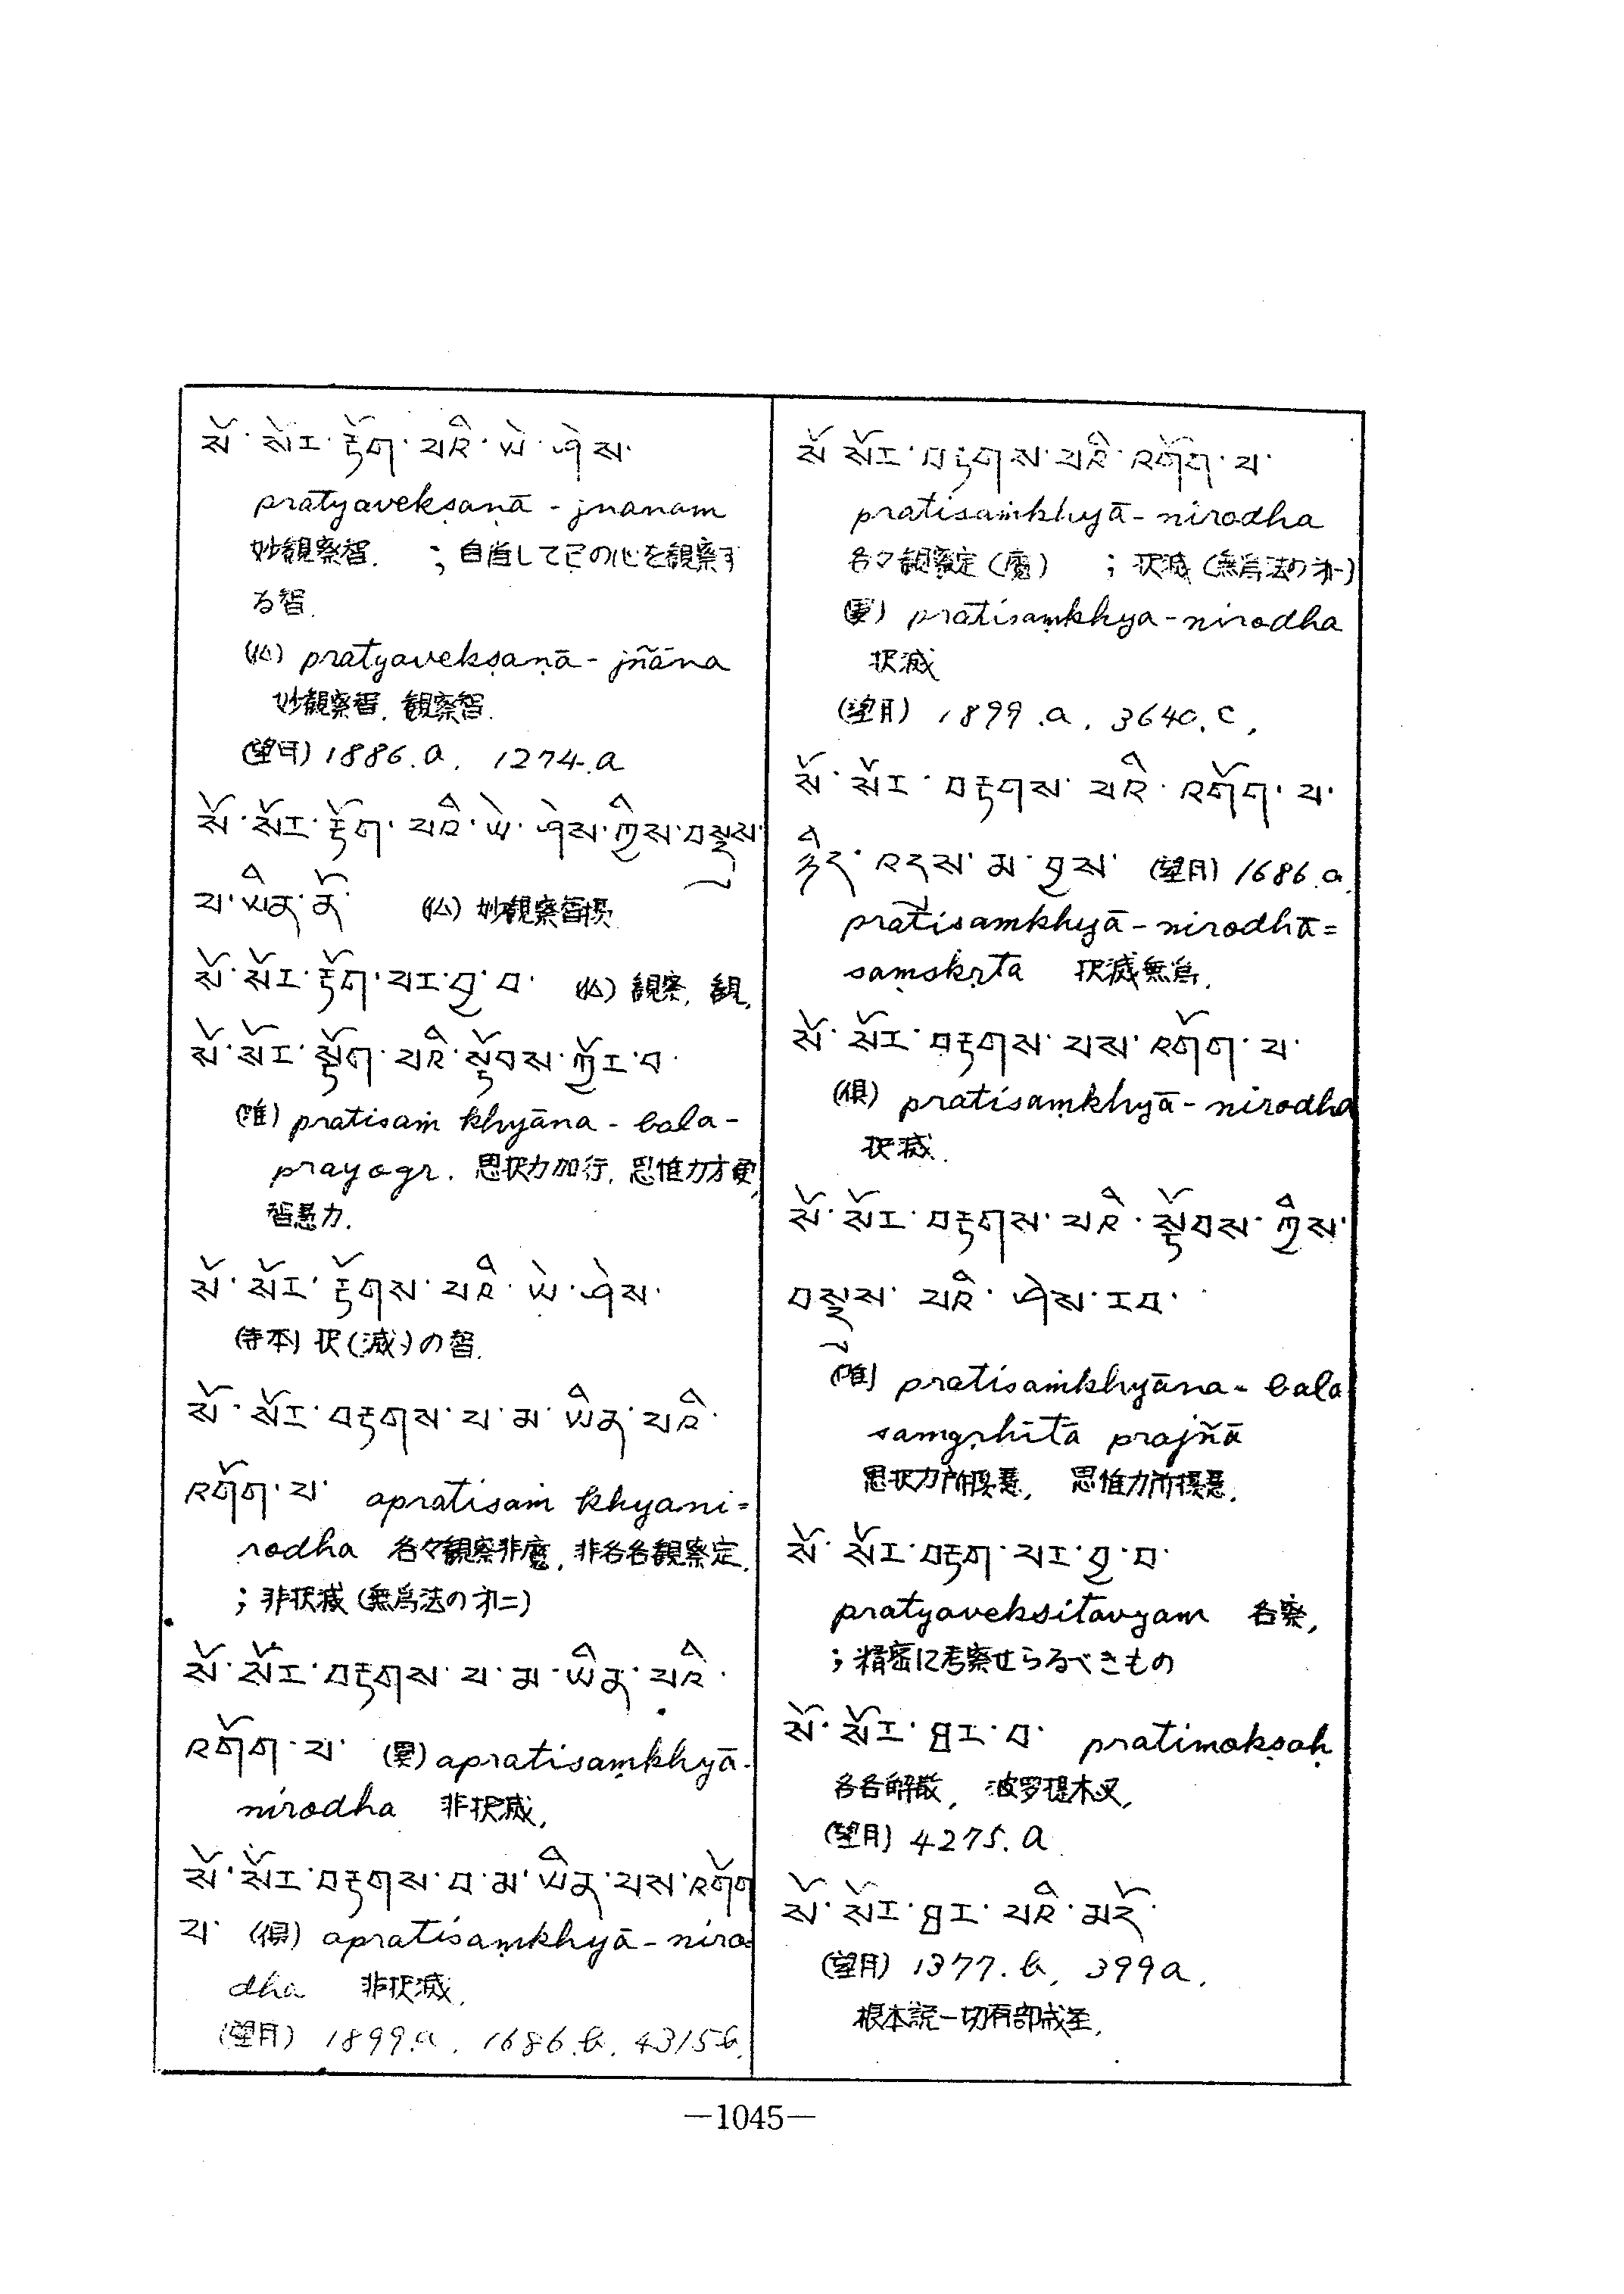 སོ་སོར་རྟོག་པའི་ཡེ་ཤེས་
pratyavekṣaṇā - jnanam
妙観察智. ; 自省して己の心を観察す
る智.
(仏) pratyavekṣaṇā - jñāna
妙観察智, 観察智.
(望月) 1886.a. 1274.a
སོ་སོར་རྟོག་པའི་ཡེ་ཤེས་ཀྱིས་བསྡུས་
པ་ཡིན་ནོ་ (仏) 妙観察智摂
སོ་སོར་རྟོག་པར་བྱ་བ་ (仏) 観察, 観,
སོ་སོར་སྟོག་པའི་སྟོབས་ཀྱོར་བ་
(唯) pratisaṁ khyāna - bala -
prayogr. 思択力加行, 思惟力方便,
智慧力.
སོ་སོར་རྟོགས་པའི་ཡེ་ཤེས་
(寺本) 択(滅)の智.
སོ་སོར་བརྟགས་པ་མ་ཡིན་པའི་
འགོག་པ་ apratisaṁ khyani =
rodha 各々観察非魔, 非各各観察定.
; 非択滅 (無為法の才二)
སོ་སོར་བརྟགས་པ་མ་ཡིན་པའི་
འགོག་པ་ apratisaṃkhyā -
nirodha 非択滅,
སོ་སོར་བརྟགས་བ་མ་ཡིན་པས་འགོག
པ་ (倶) apratisaṃkhyā - niro=
dha 非択滅,
(望月) 1899.a. 1686.b. 4315b.
སོ་སོར་བརྟགས་པའི་འགོག་པ་
pratisaṁkhyā - nirodha
各々観察定 (魔) ; 択滅 (無為法の才一)
pratisaṃkhya - nirodha
択滅
(望月) 1899.a. 3640.c,
སོ་སོར་བརྟགས་པའི་འགོག་པ་
ཉིད་འདས་མ་བྱས་ (望月) 1686.a.
pratisamkhyā - nirodhā =
saṃskṛta 択滅無為.
སོ་སོར་བརྟགས་པས་འགོག་པ་
(倶) pratisaṃkhyā - nirodha
択滅.
སོ་སོར་བརྟགས་པའི་སྟོབས་ཀྱིས་
བསྡུས་པའི་ཤེས་རབ་
(唯) pratisaṁkhyāna - bala
samgṛhitā prajñā
思択力所摂慧, 思惟力所摂慧.
སོ་སོར་བརྟག་པར་བྱ་བ་
pratyaveksitavyam 各察,
; 精密に考察せらるべきもの
སོ་སོར་ཐར་བ་ pratimokṣaḥ
各各解散, 波罗提木叉,
(望月) 4275.a
སོ་སོར་ཐར་པའི་མདོ་
(望月) 1377.b, 399a,
根本説一切有部戒至,
—1045—